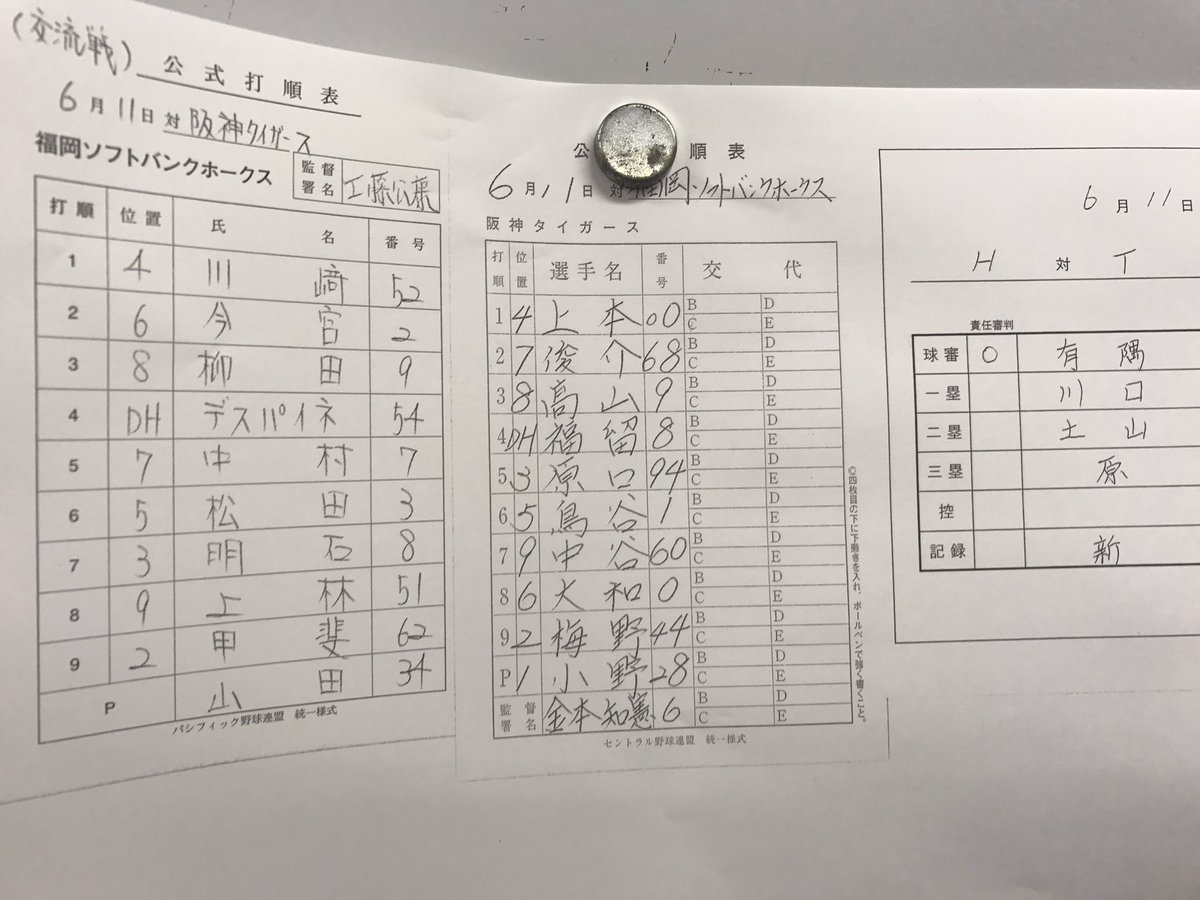 (交流戦)
公式打順表
6月11日 対 阪神タイガース
福岡ソフトバンクホークス
監督署名 工藤公康
打順 位置 氏名 番号
1 4 川﨑 52
2 6 今宮 2
3 8 柳田 9
4 DH デスパイネ 54
5 7 中村 7
6 5 松田 3
7 3 明石 8
8 9 上林 51
9 2 甲斐 62
P 山田 34
パシフィック野球連盟 統一様式
公 順表
6月11日 対 岡ソフトバンクホークス
阪神タイガース
打順 位置 選手名 番号 交代
1 4 上本 00 B D C E
2 7 俊介 68 B D C E
3 8 高山 9 B D C E
4 DH 福留 8 B D C E
5 3 原口 94 B D C E
6 5 鳥谷 1 B D C E
7 9 中谷 60 B D C E
8 6 大和 0 B D C E
9 2 梅野 44 B D C E
P 1 小野 28 B D C E
監督署名 金本知憲 6 B D C E
セントラル野球連盟 統一様式
◎四枚目の下に下敷きを入れ、ボールペンで強く書くこと。
6月11日
H 対 T
責任審判
球審 ○ 有隅
一塁 川口
二塁 土山
三塁 原
控
記録 新